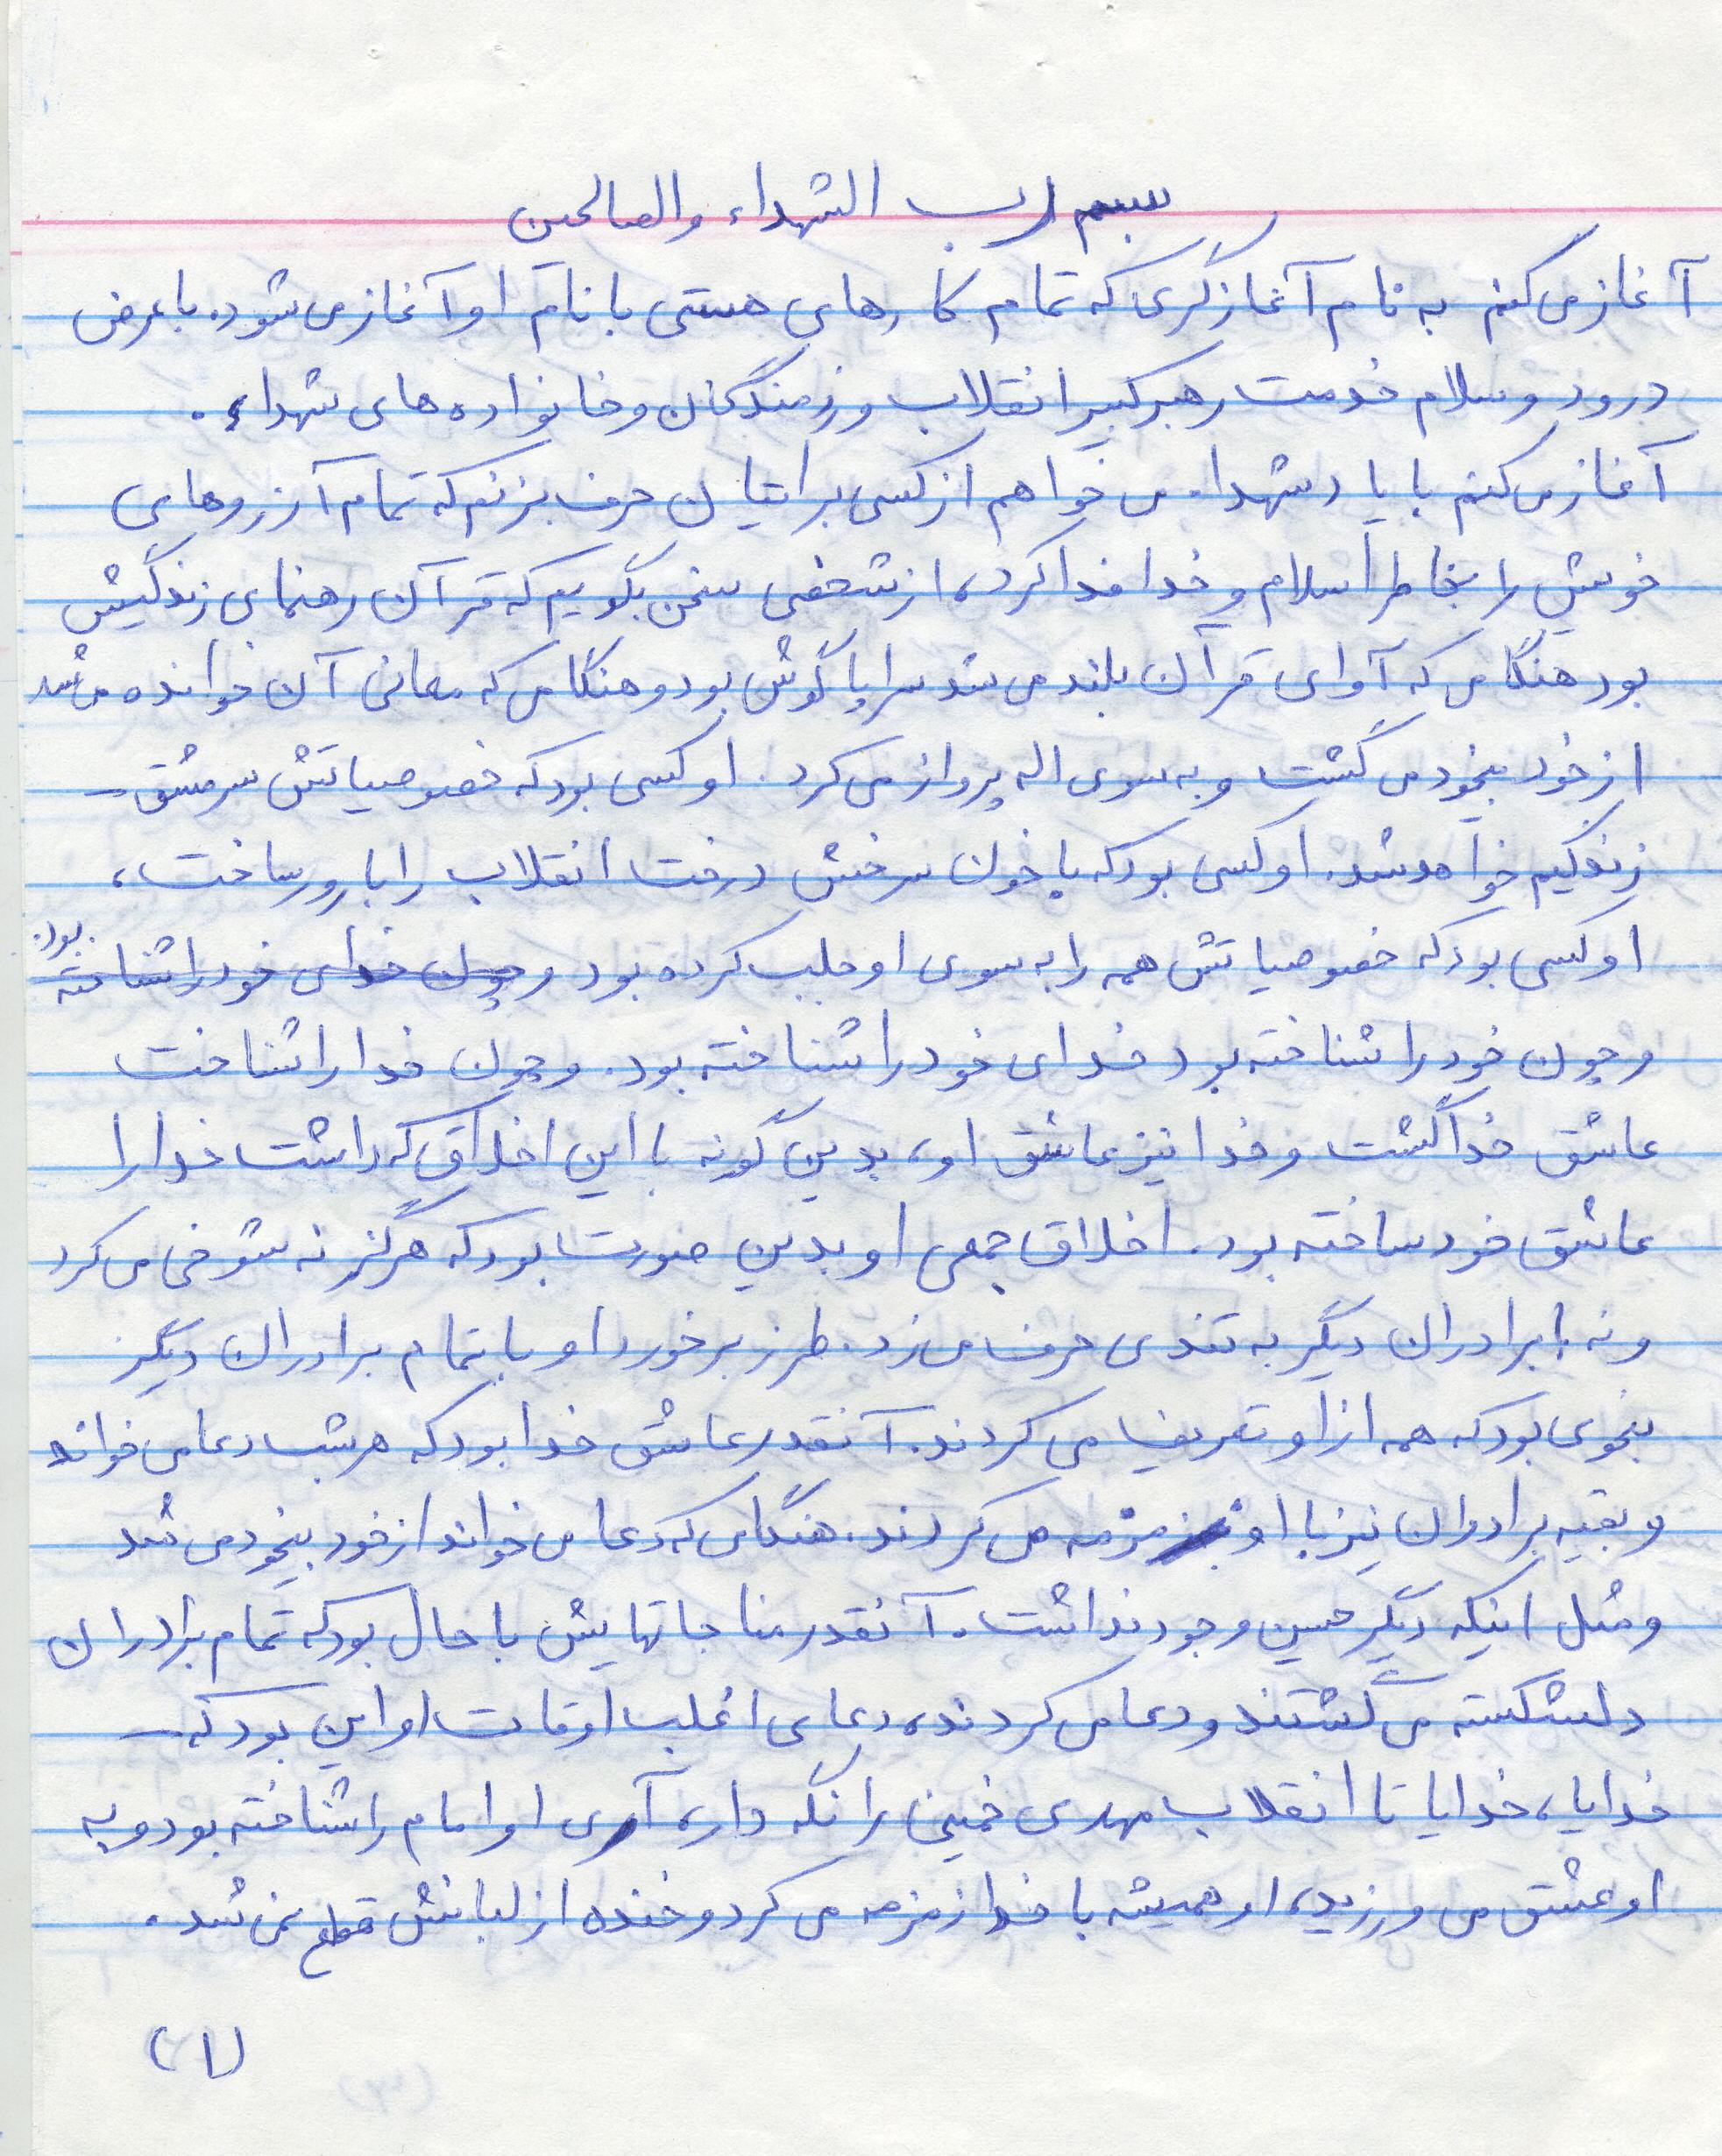 بسم رب الشهداء والصالحین
آغاز می کنم به نام آغازگری که تمام کارهای هستی با نام او آغاز می شود. با عرض
درود و سلام خدمت رهبر کبیر انقلاب و رزمندگان و خانواده های شهداء.
آغاز می کنم با یاد شهدا. می خواهم از کسی برایتان حرف بزنم که تمام آرزوهای
خویش را بخاطر اسلام و خدا فدا کرد، از شخصی سخن بگویم که قرآن رهنمای زندگیش
بود هنگامی که آوای قرآن بلند می شد سراپا گوش بود و هنگامی که معانی آن خوانده می شد
از خود بیخود می گشت و به سوی اله پرواز می کرد. او کسی بود که خصوصیاتش سرمشق
زندگیم خواهد شد. او کسی بود که با خون سرخش درخت انقلاب را بارور ساخت،
او کسی بود که خصوصیاتش همه را به سوی او جلب کرده بود و چون خدای خود را شناخته بود.
و چون خود را شناخته بود خدای خود را شناخته بود. و چون خدا را شناخت
عاشق خدا گشت و خدا نیز عاشق او، بدین گونه با این اخلاقی که داشت خدا را
عاشق خود ساخته بود. اخلاق جمعی او بدین صورت بود که هرگز نه شوخی می کرد
و نه با برادران دیگر به تندی حرف می زد. طرز برخورد او با تمام برادران دیگر
بنحوی بود که همه از او تعریف می کردند. آنقدر عاشق خدا بود که هر شب دعا می خواند
و بقیه برادران نیز با او زمزمه می کردند. هنگامی که دعا می خواند از خود بیخود می شد
و مثل اینکه دیگر حسین وجود نداشت. آنقدر مناجاتهایش با حال بود که تمام برادران
دلشکسته می گشتند و دعا می کردند، دعای اغلب اوقات او این بود که
خدایا، خدایا تا انقلاب مهدی خمینی را نگه دار، آری او امام را شناخته بود و به
او عشق می ورزید، او همیشه با خدا زمزمه می کرد و خنده از لبانش قطع نمی شد.
(۱)